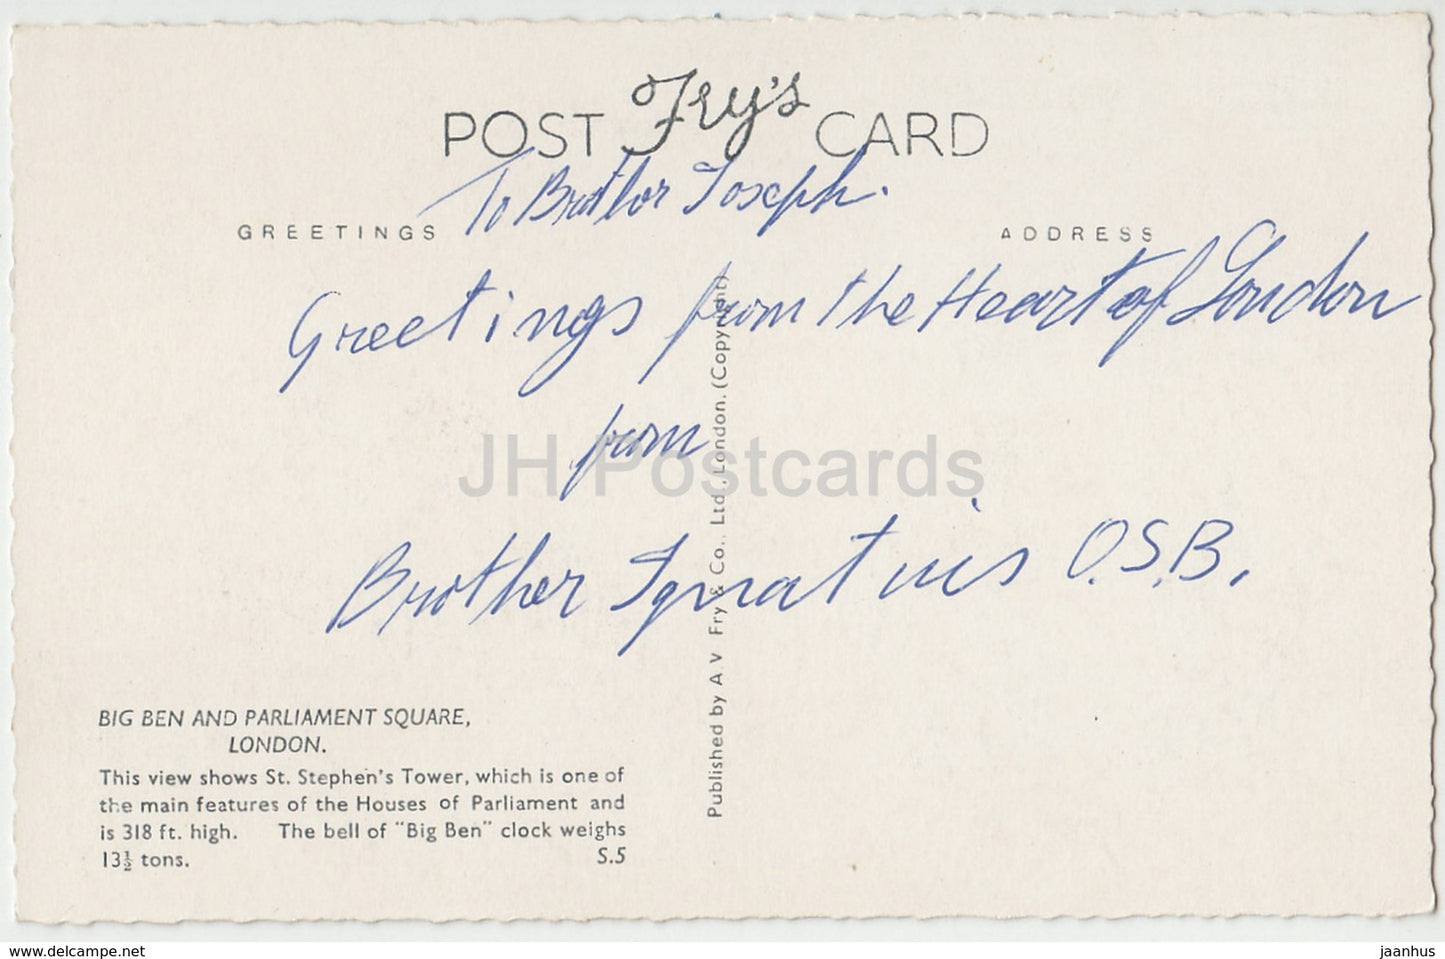 POST Fry's CARD
To Brother Joseph.
GREETINGS
ADDRESS
Greetings from the Heart of London
from
Brother Ignatius O.S.B.
JH Postcards
Published by A V Fry & Co., Ltd., London. (Copyright)
BIG BEN AND PARLIAMENT SQUARE,
LONDON.
This view shows St. Stephen's Tower, which is one of
the main features of the Houses of Parliament and
is 318 ft. high. The bell of "Big Ben" clock weighs
13½ tons. S.5
www.delcampe.net
jaanhus